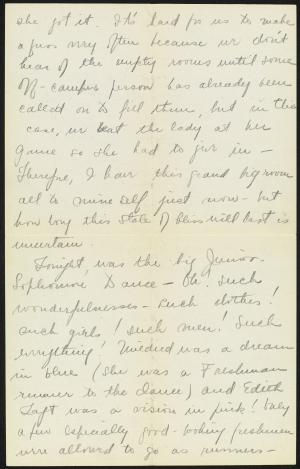 she got it. It's hard for us to make
a fuss very often because we don't
hear of the empty rooms until some
off-campus person has already been
called on to fill them, but in this
case, we beat the lady at her
game so she had to give in –
Therefore, I have this grand big room
all to mine self just now – but
how long this state of bliss will last is
uncertain.
Tonight was the big Junior-
Sophomore Dance – Oh! Such
wonderfulnesses – such clothes!
Such girls! Such men! Such
everything! Mildred was a dream
in blue (She was a Freshman
runner to the dance) and Edith
Taft was a vision in pink! Only
a few especially good-looking freshmen
were allowed to go as runners –